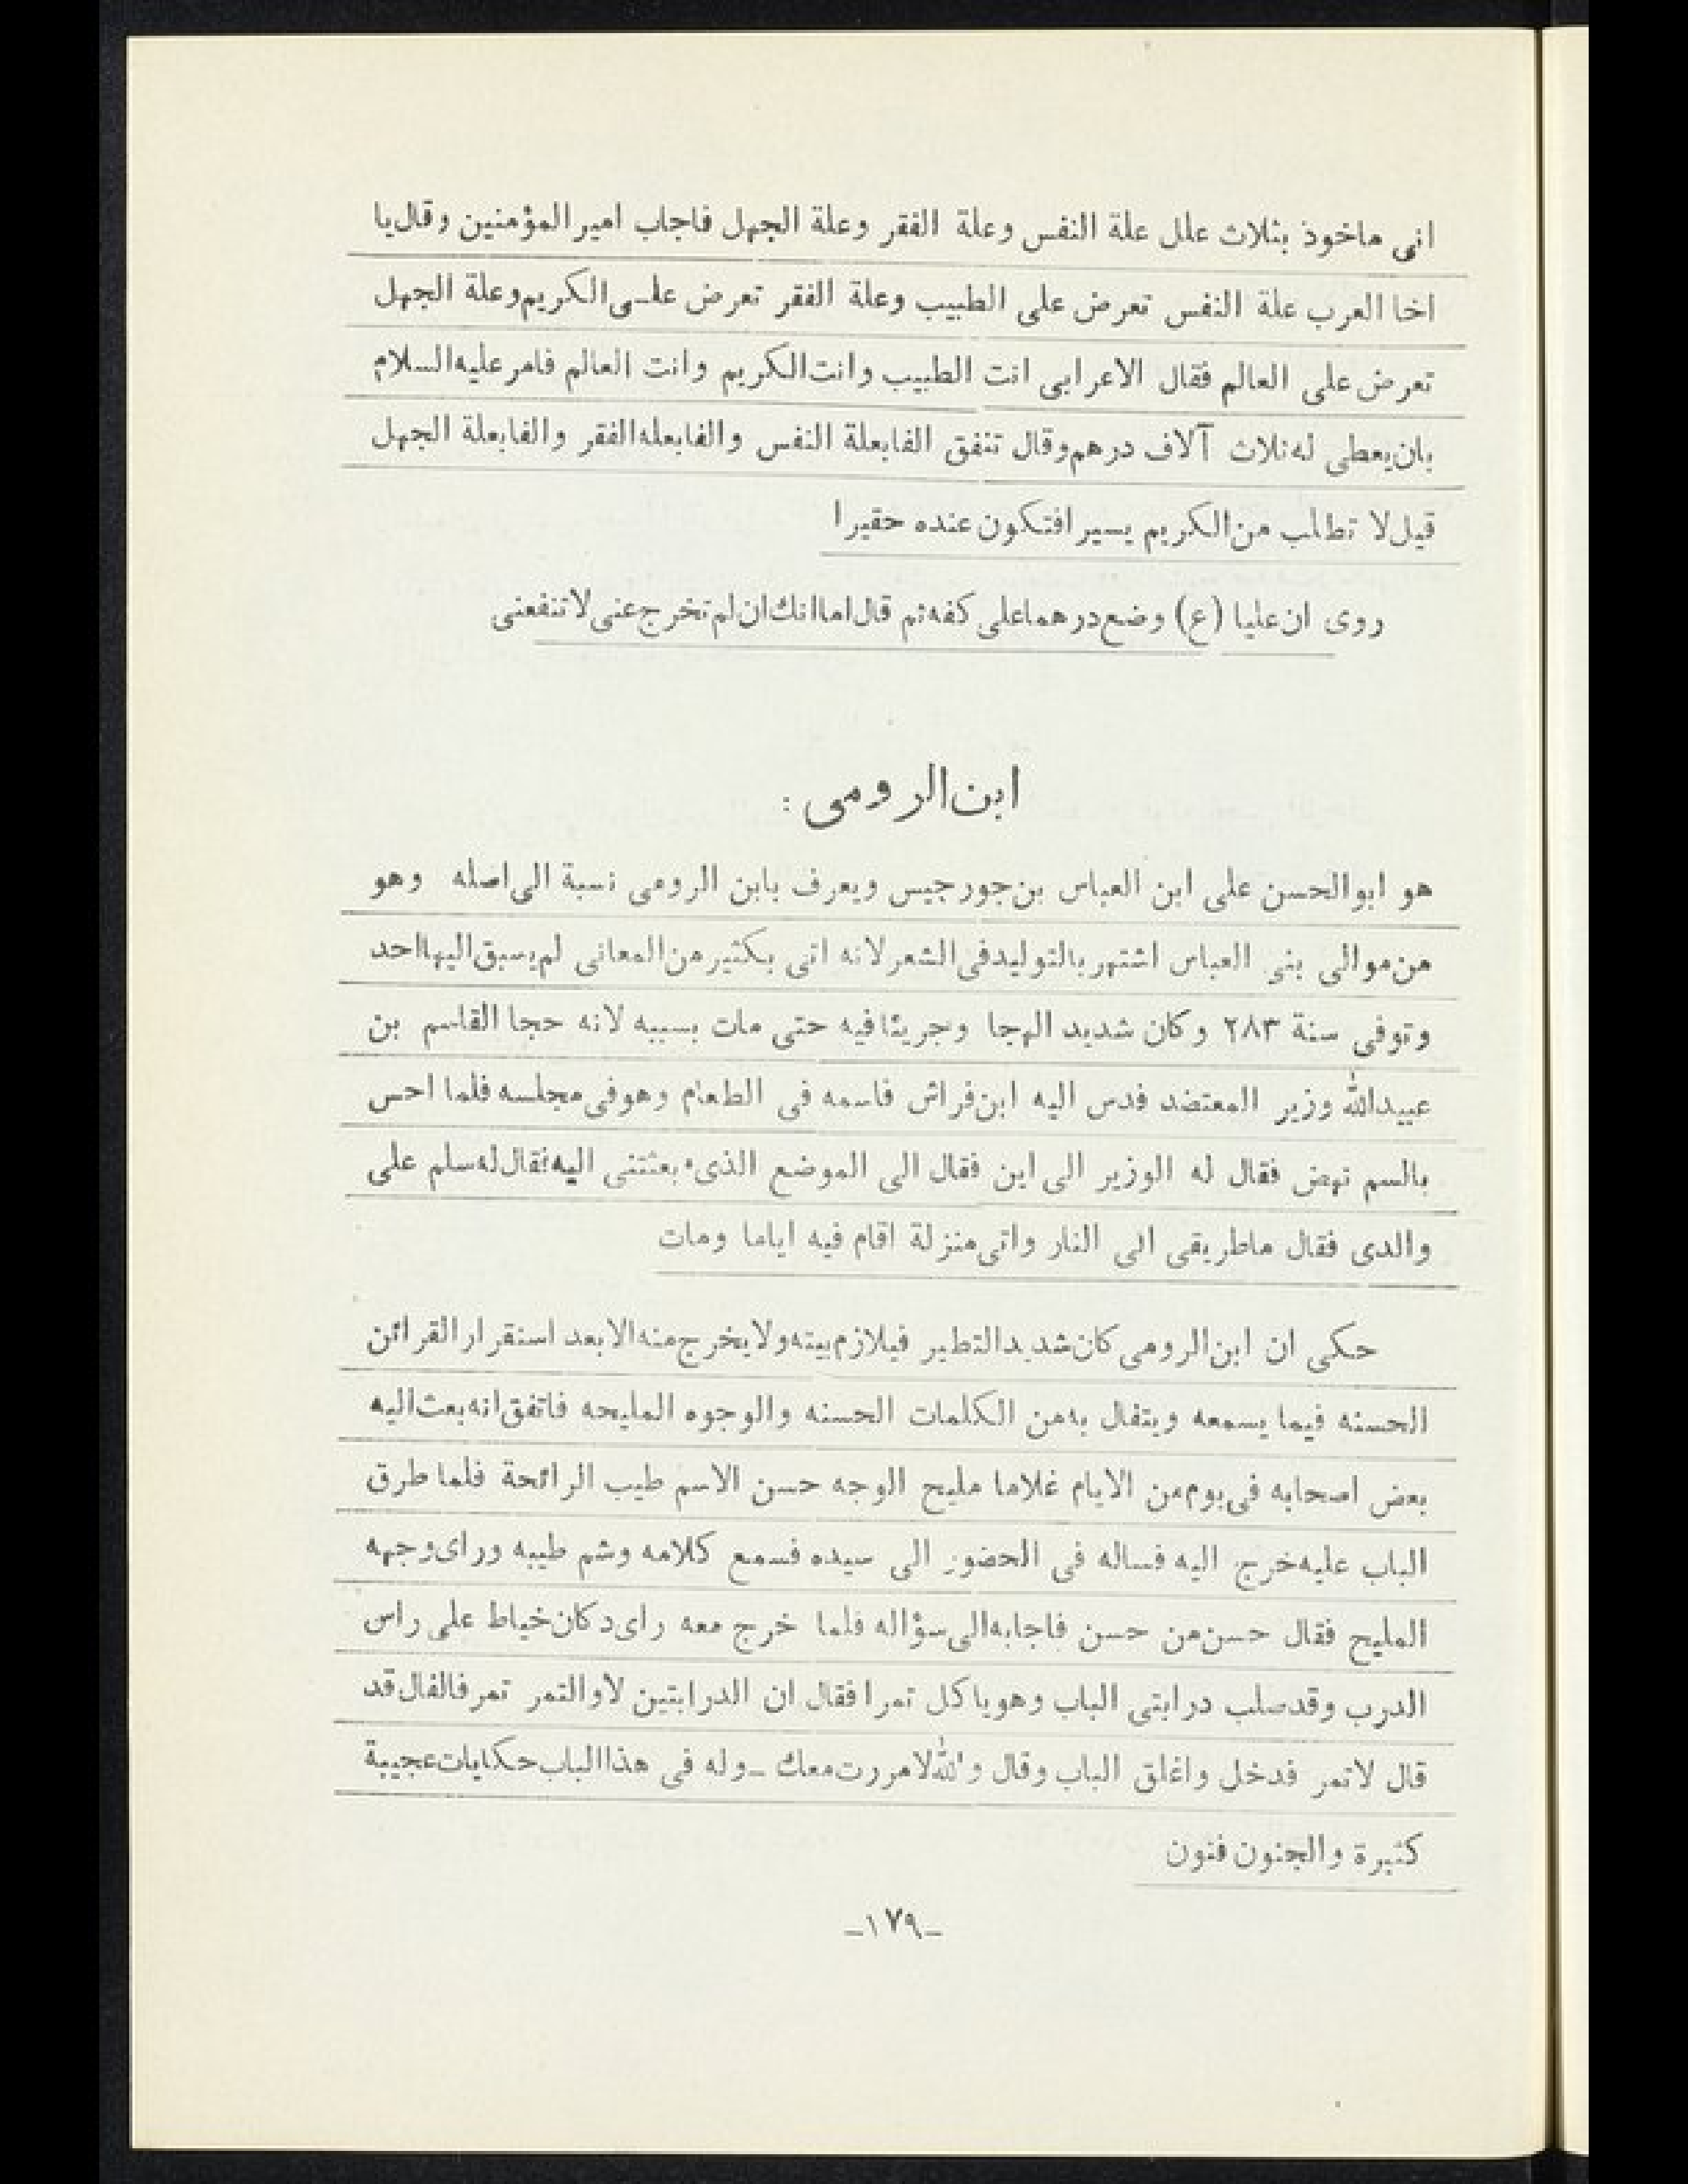 انى ماخوذ بثلاث علل علة النفس وعلة الفقر وعلة الجهل فاجاب امير المؤمنين وقال يا
اخا العرب علة النفس تعرض على الطبيب وعلة الفقر تعرض علــى الكريم وعلة الجهل
تعرض على العالم فقال الاعرابى انت الطبيب وانت الكريم وانت العالم فامر عليه السلام
بان يعطى له ثلاث آلاف درهم وقال تنفق الفا بعلة النفس والفا بعله الفقر والفا بعلة الجهل
قيل لا تطلب من الكريم يسيرا فتكون عنده حقيرا
روى ان عليا (ع) وضع درهما على كفه ثم قال اما انك ان لم تخرج عنى لا تنفعنى
ابن الرومى :
هو ابوالحسن على ابن العباس بن جورجيس ويعرف بابن الرومى نسبة الى اصله وهو
من موالى بنى العباس اشتهر بالتوليد فى الشعر لانه اتى بكثير من المعانى لم يسبق اليها احد
وتوفى سنة ٢٨٣ وكان شديد الهجا وجريئا فيه حتى مات بسببه لانه حجا القاسم بن
عبيدالله وزير المعتضد فدس اليه ابن فراش فاسمه فى الطعام وهو فى مجلسه فلما احس
بالسم نهض فقال له الوزير الى اين فقال الى الموضع الذى بعثتنى اليه فقال له سلم على
والدى فقال ماطريقى الى النار واتى منزلة اقام فيه اياما ومات
حكى ان ابن الرومى كان شديد التطير فيلازم بيته ولا يخرج منه الا بعد استقرار القرائن
الحسنه فيما يسمعه ويتفال به من الكلمات الحسنه والوجوه المليحه فاتفق انه بعث اليه
بعض اصحابه فى يوم من الايام غلاما مليح الوجه حسن الاسم طيب الرائحة فلما طرق
الباب عليه خرج اليه فساله فى الحضور الى سيده فسمع كلامه وشم طيبه وراى وجهه
المليح فقال حسن من حسن فاجابه الى سؤاله فلما خرج معه راى دكان خياط على راس
الدرب وقد صلب درابتى الباب وهو ياكل تمرا فقال ان الدرابتين لا والتمر تمر فالفال قد
قال لاتمر فدخل واغلق الباب وقال والله لامررت معك ــ وله فى هذا الباب حكايات عجيبة
كثيرة والجنون فنون
ــ ١٧٩ ــ